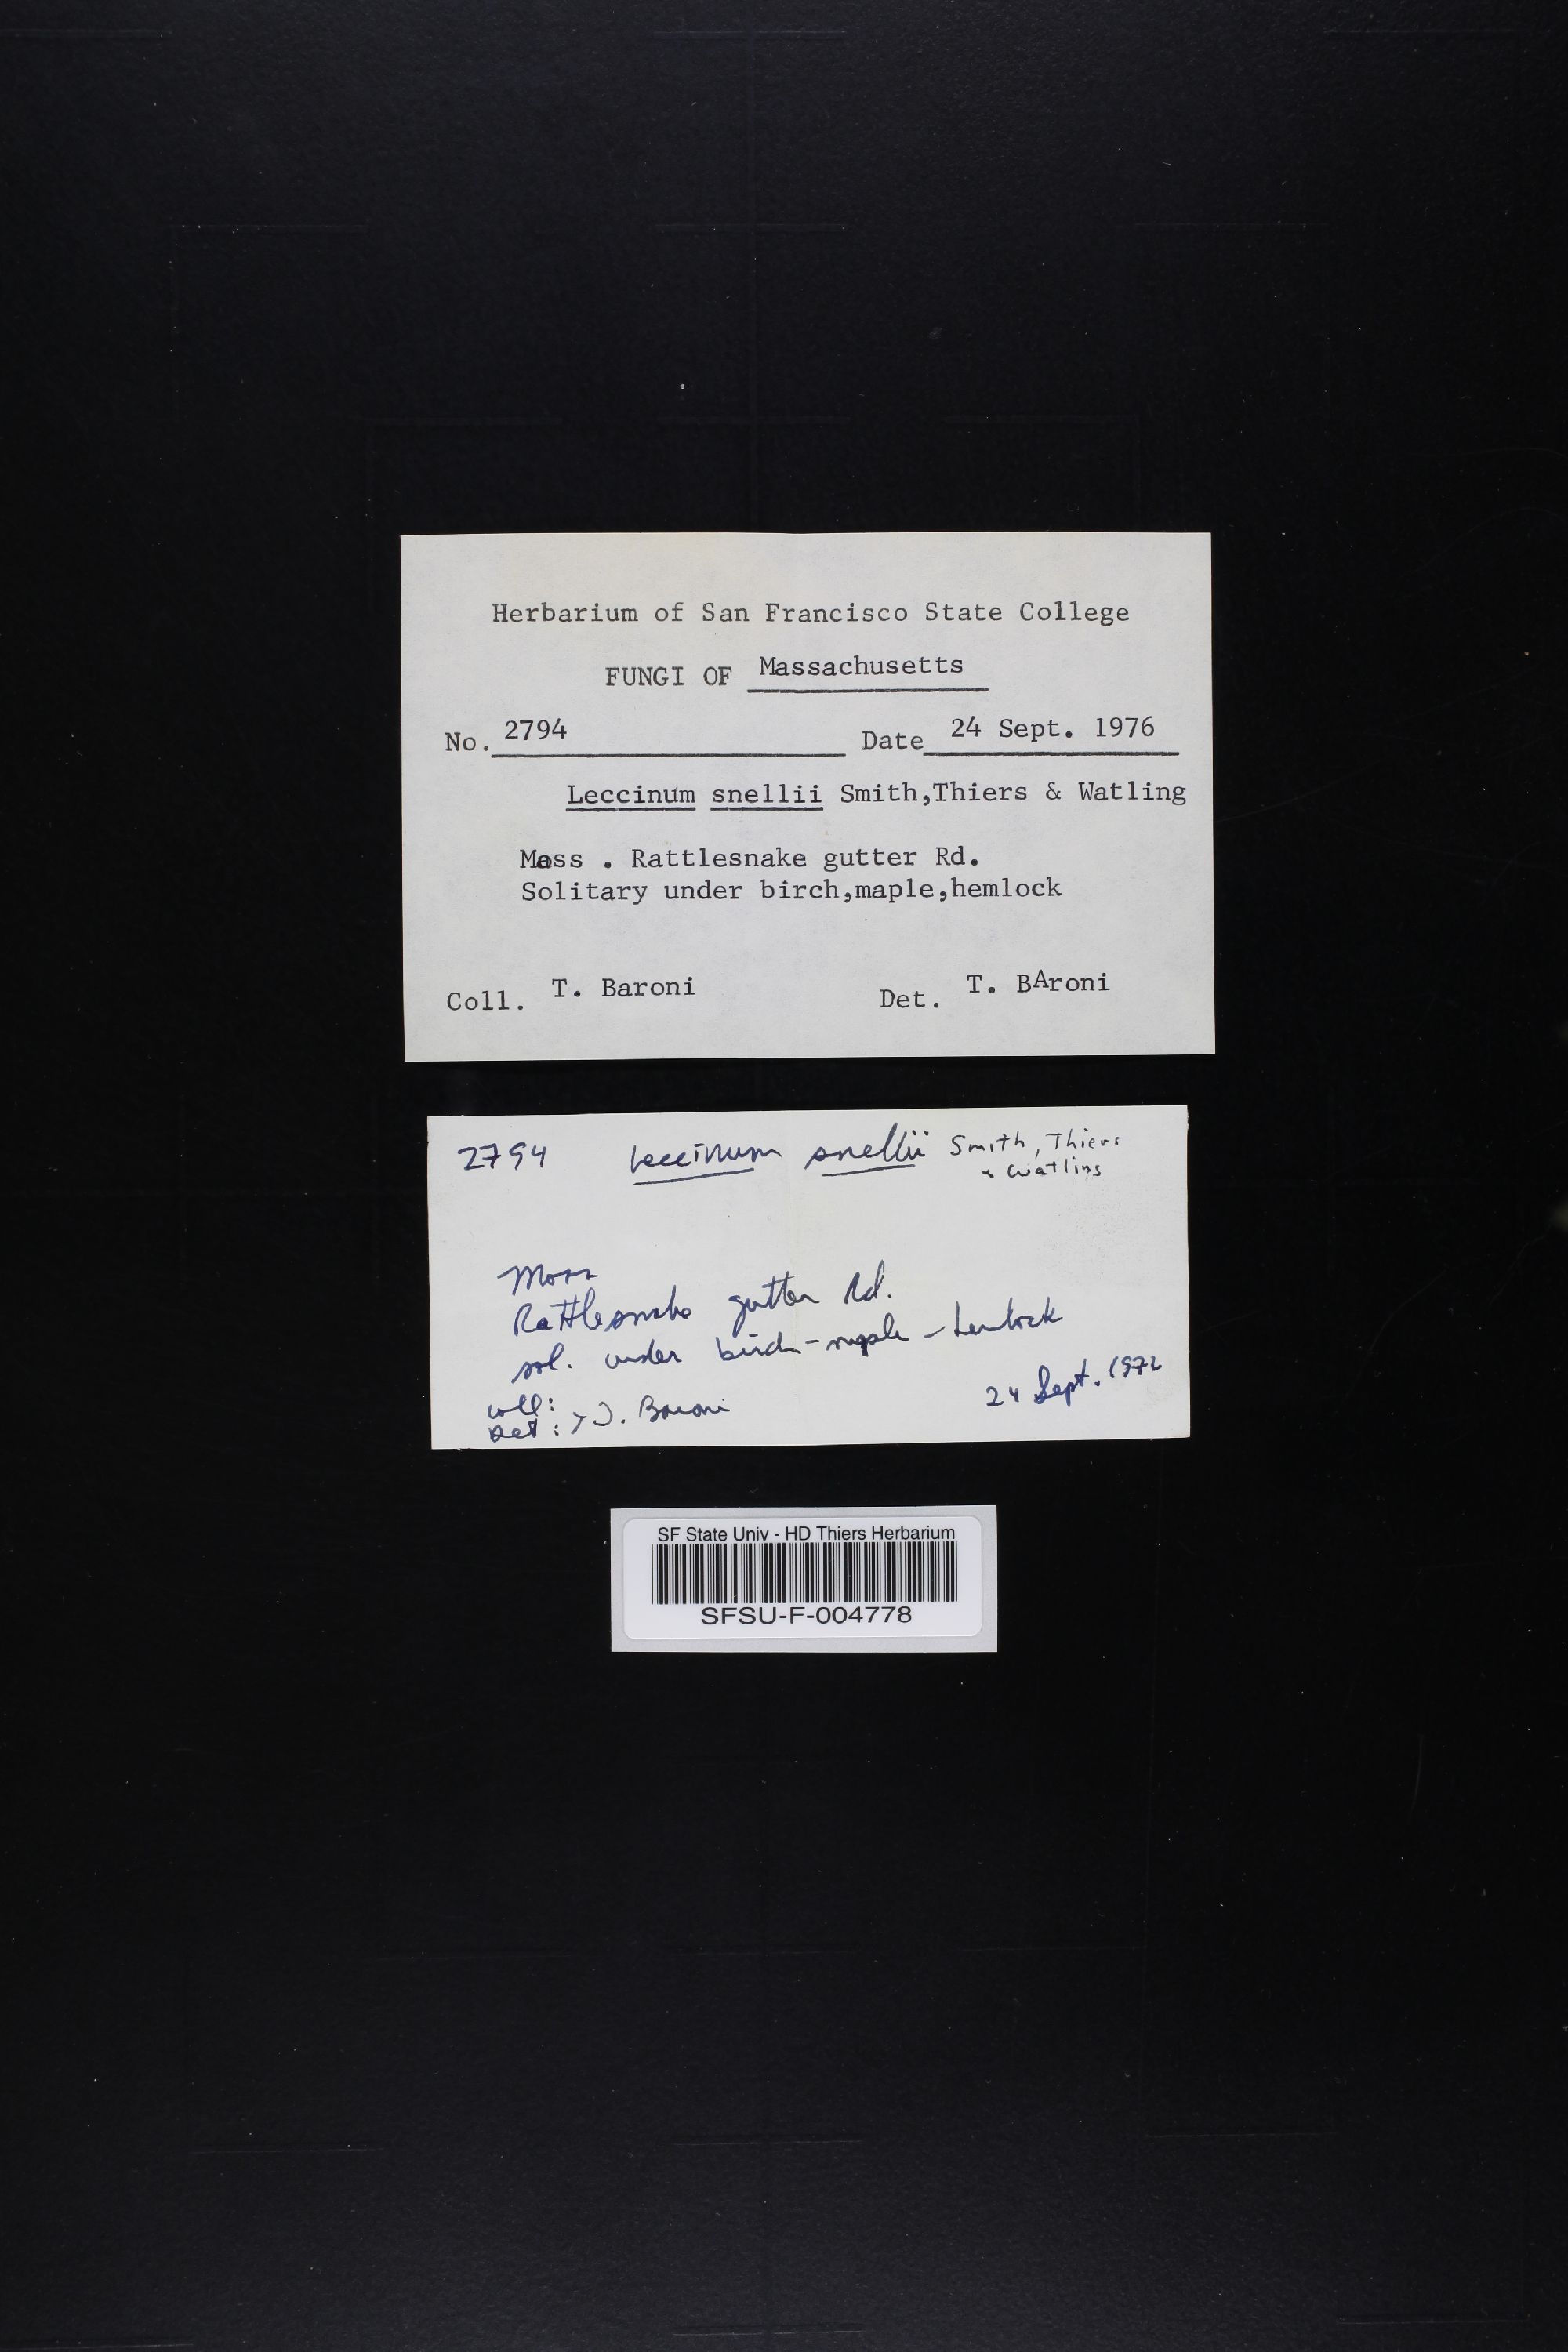 Herbarium of San Francisco State College
FUNGI OF Massachusetts
No. 2794 Date 24 Sept. 1976
Leccinum snellii Smith,Thiers & Watling
Mass . Rattlesnake gutter Rd.
Solitary under birch,maple,hemlock
Coll. T. Baroni Det. T. BAroni
2794 Leccinum snellii Smith, Thiers
& Watling
Mass
Rattlesnake gutter Rd.
sol. under birch-maple-hemlock
24 Sept.
coll:
Det: > T. Baroni
SF State Univ - HD Thiers Herbarium
SFSU-F-004778